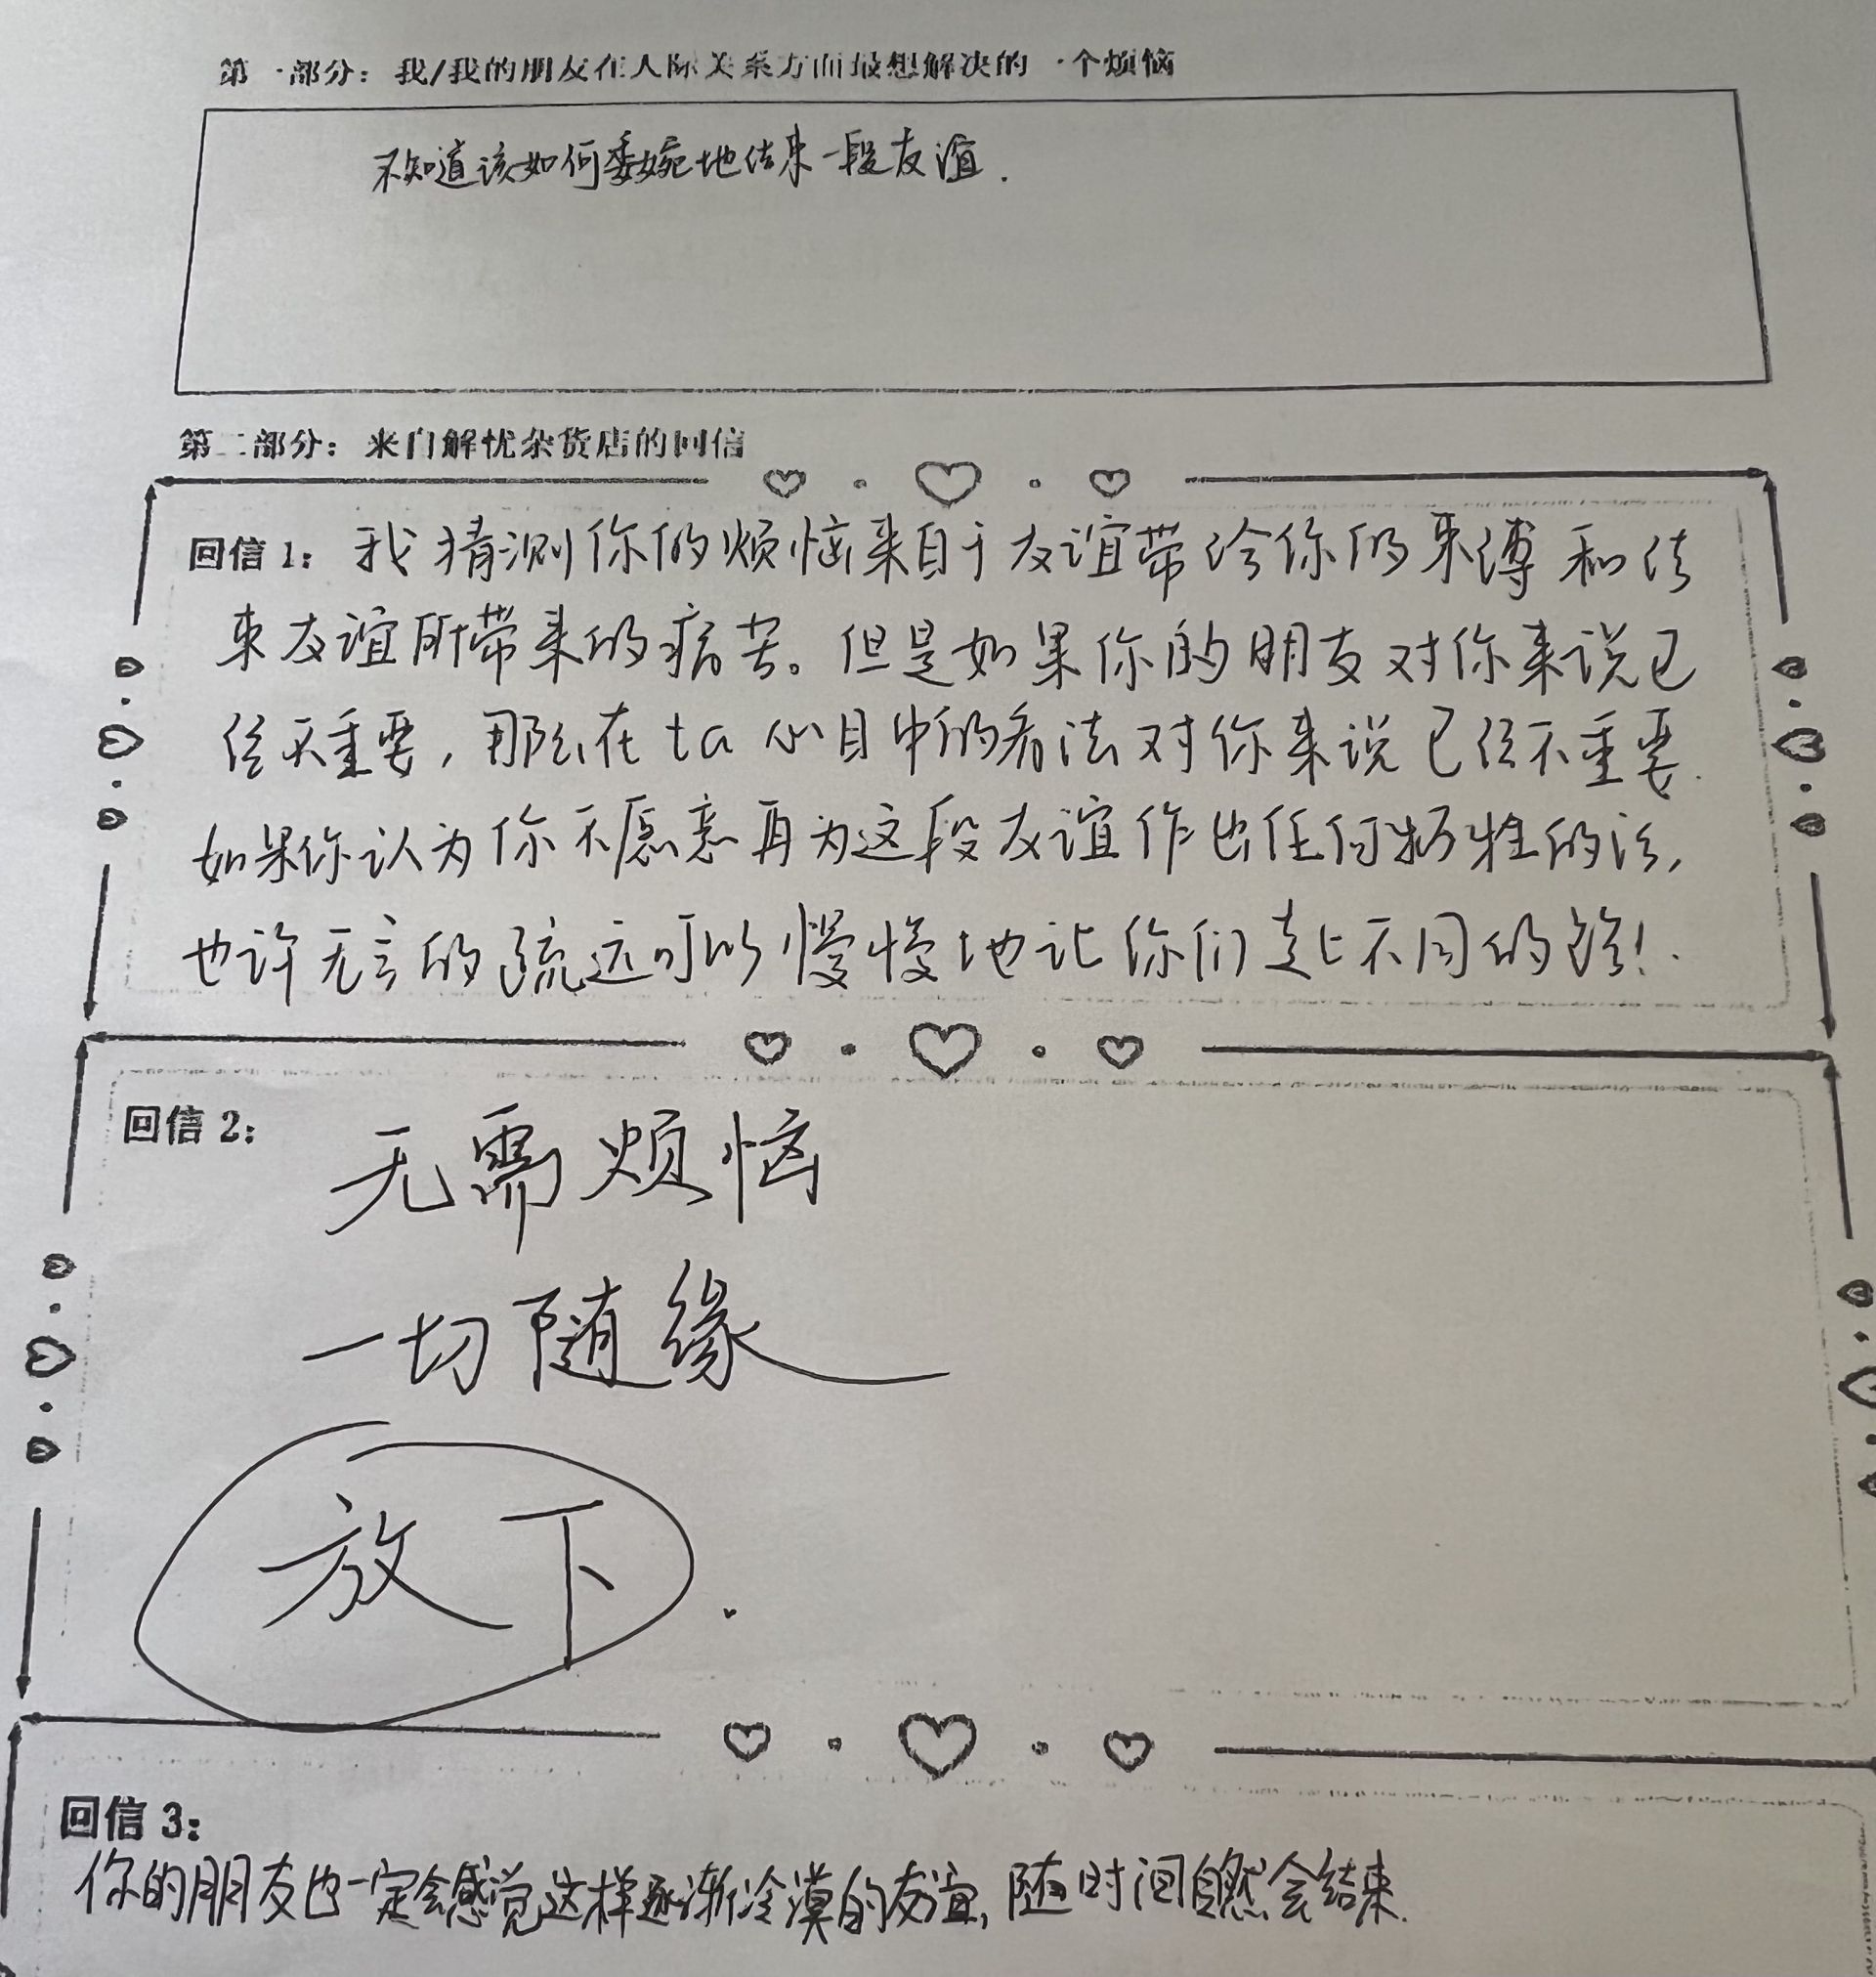 第一部分：我/我的朋友在人际关系方面最想解决的一个烦恼
不知道该如何委婉地结束一段友谊.
第二部分：来自解忧杂货店的回信
回信1：我猜测你的烦恼来自于友谊带给你的束缚和结
束友谊所带来的痛苦。但是如果你的朋友对你来说已
经不重要，那么在ta心目中的看法对你来说已经不重要.
如果你认为你不愿意再为这段友谊作出任何牺牲的话,
也许无言的疏远可以慢慢地让你们走上不同的路!.
回信2：无需烦恼
一切随缘
放下.
回信3：
你的朋友也一定会感觉这样逐渐冷漠的友谊,随时间自然会结束.